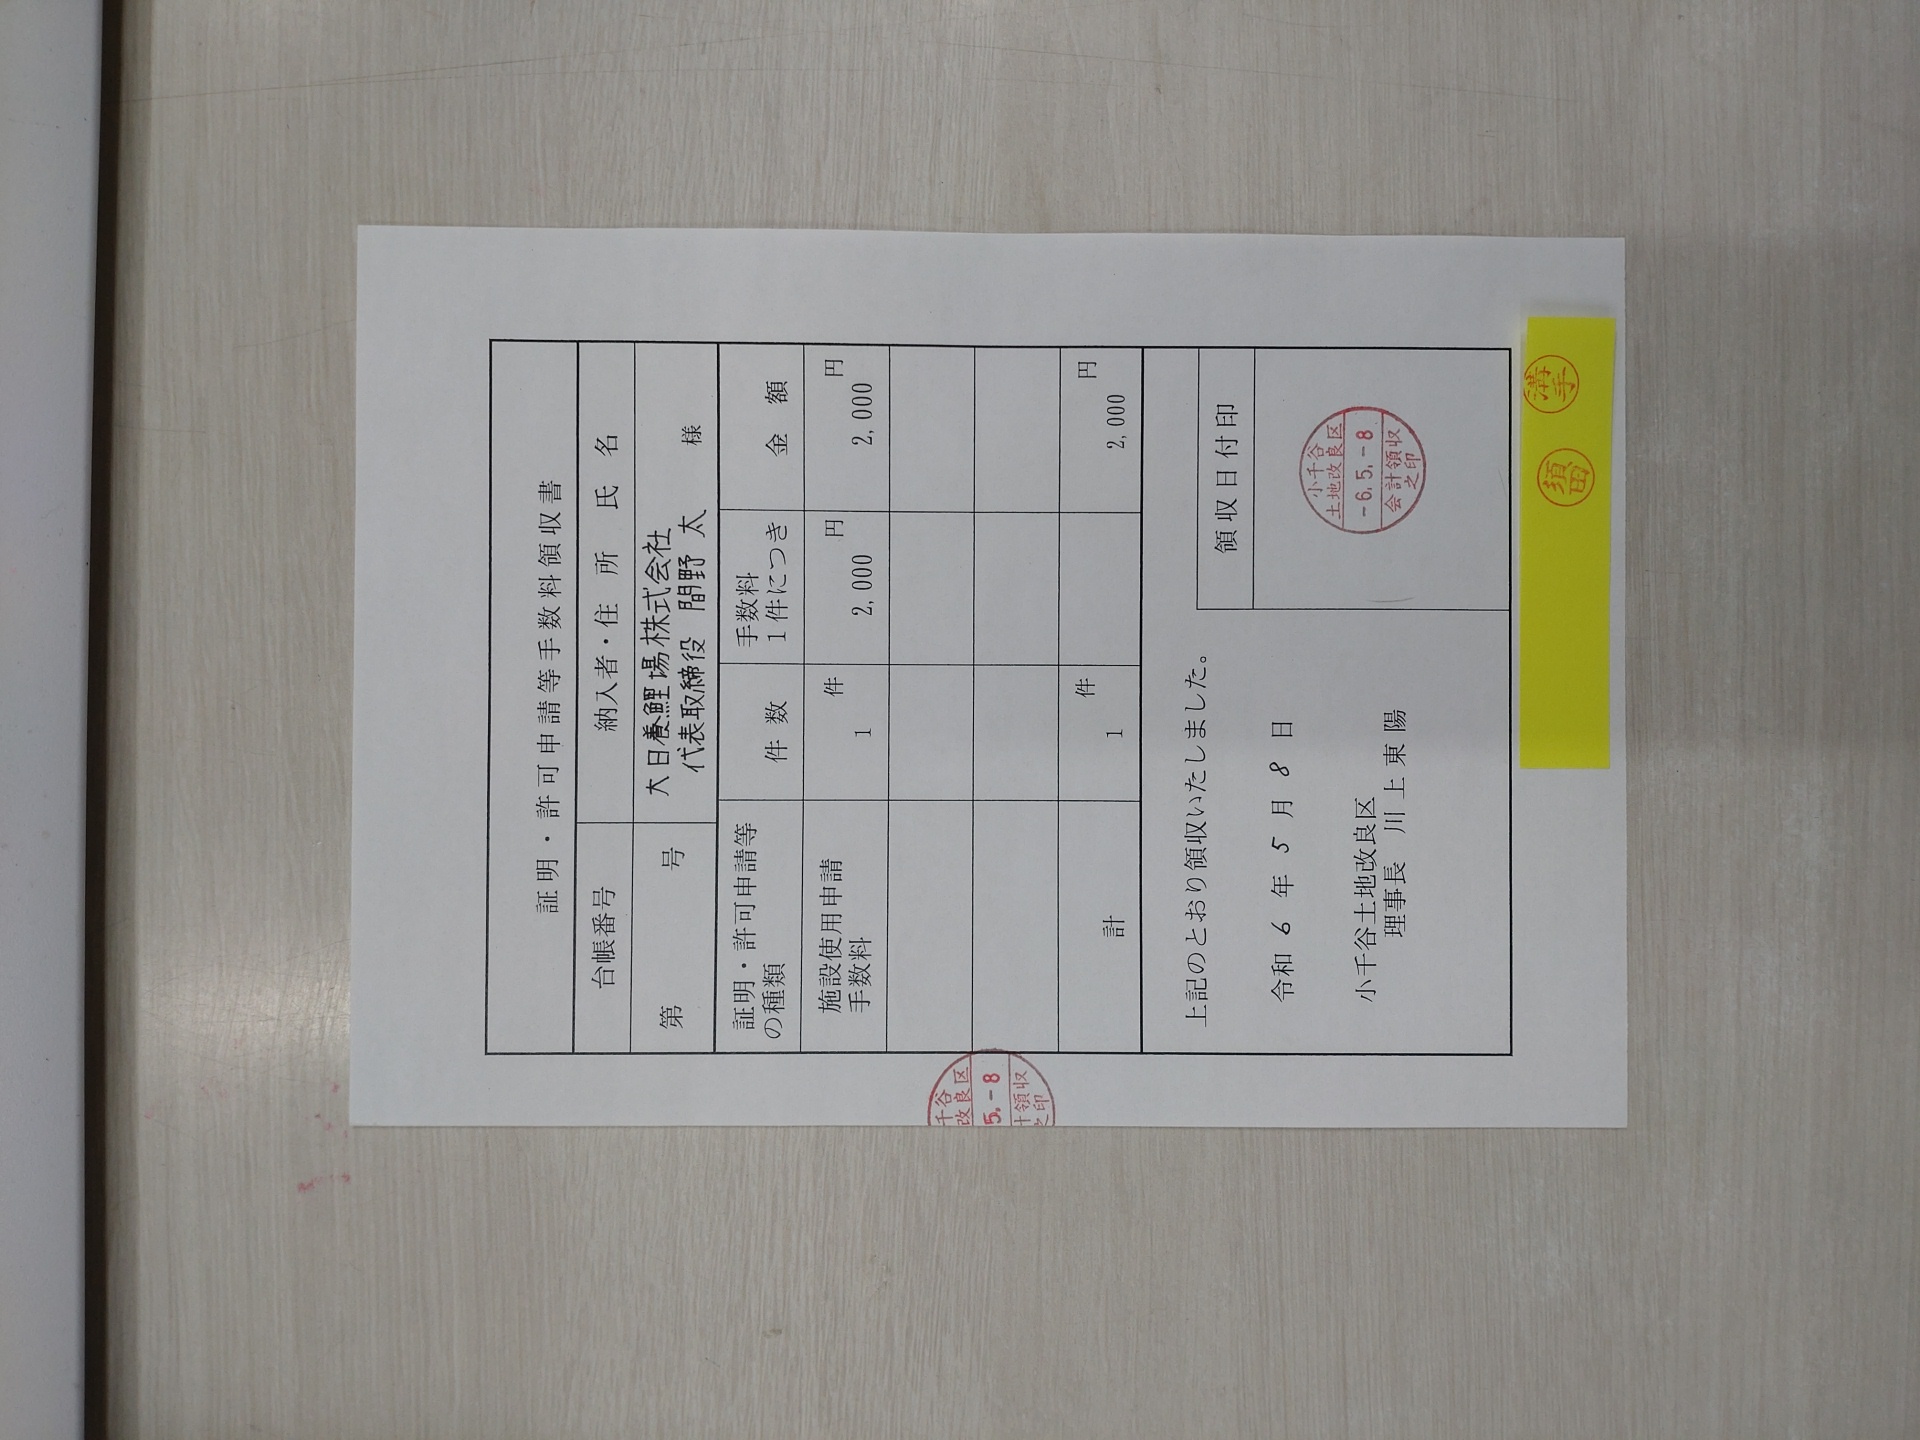 証明・許可申請等手数料領収書
台帳番号
納入者・住 所 氏 名
第 号
大日養鯉場株式会社
代表取締役 間野 太 様
証明・許可申請等
の種類
件 数
手数料
1件につき
金 額
施設使用申請
手数料
件
1
円
2,000
円
2,000
千谷
改良区
5.-8
計領収
之印
計
件
1
円
2,000
上記のとおり領収いたしました。
令和 6 年 5 月 8 日
小千谷土地改良区
理事長 川上東陽
領収日付印
小千谷
土地改良区
-6.5.-8
会計領収
之印
須田
溝手